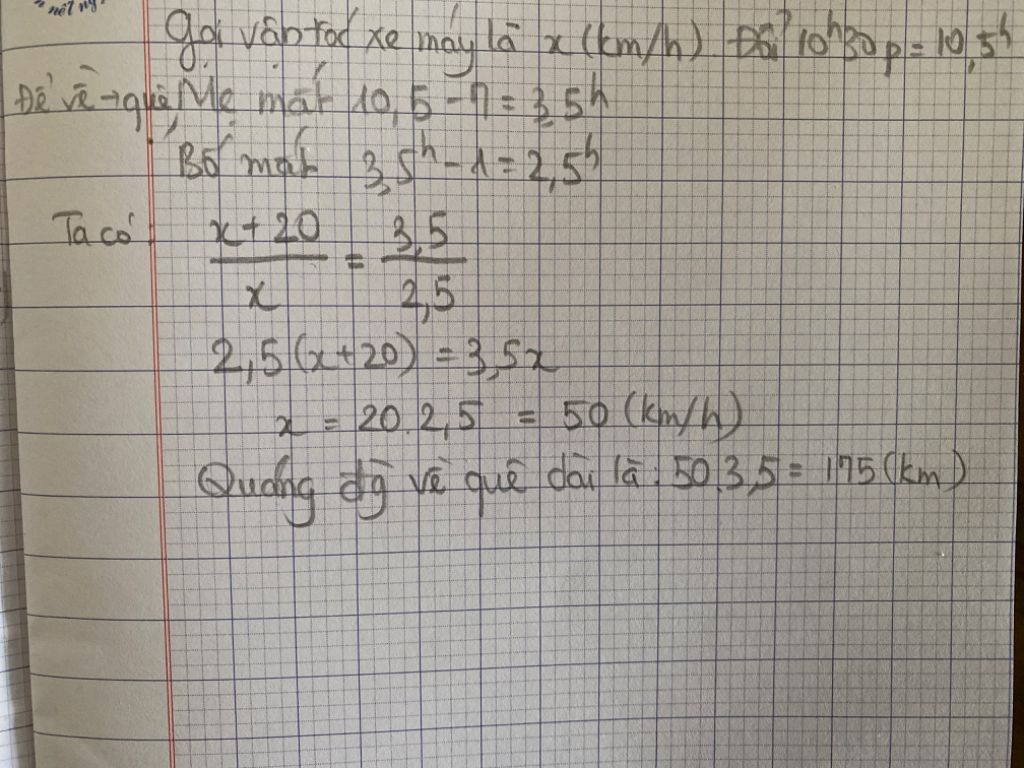 Gọi vận tốc xe máy là x (km/h) Đổi 10h30p = 10,5h
Để về → quê, Mẹ mất 10,5 - 7 = 3,5h
Bố mất 3,5h - 1 = 2,5h
Ta có x + 20 / x = 3,5 / 2,5
2,5(x+20) = 3,5x
x = 20.2,5 = 50 (km/h)
Quãng đg về quê dài là: 50.3,5 = 175 (km)